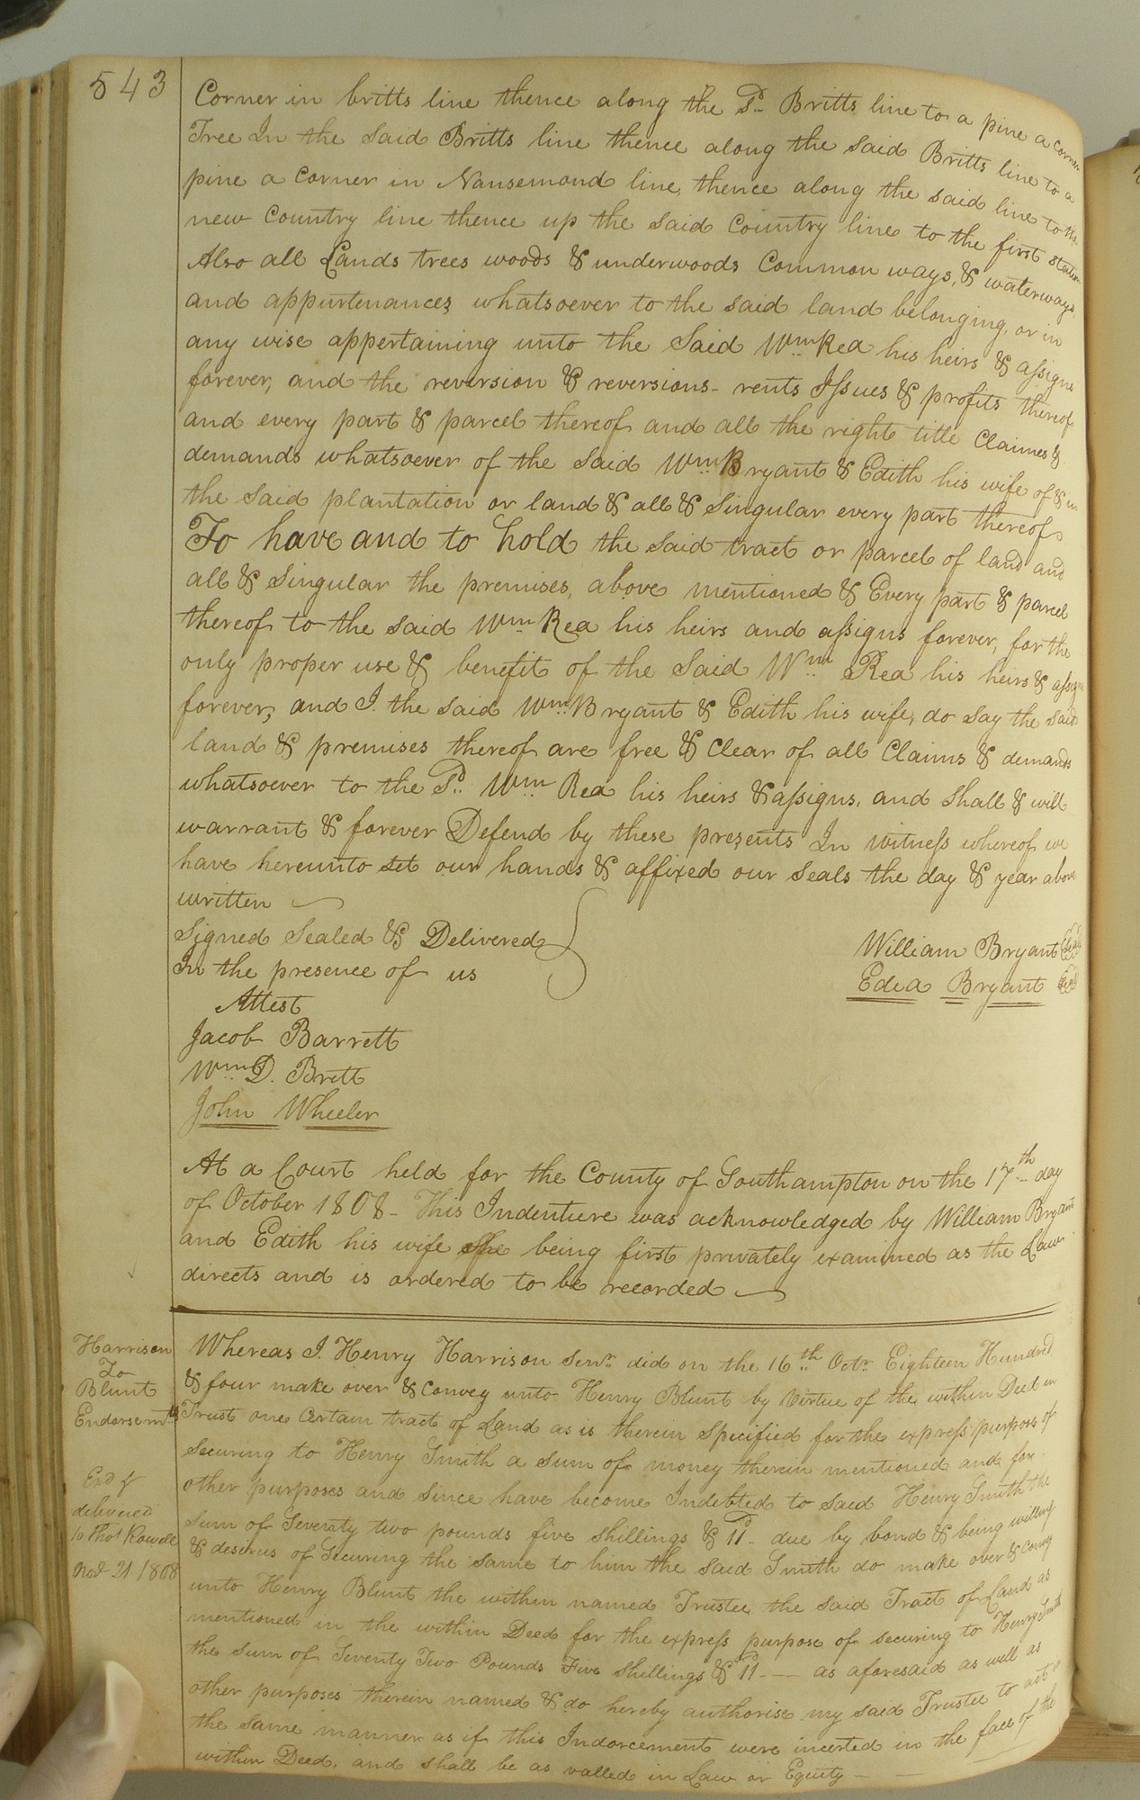 543
Corner in britts line thence along the Sd. Britts line to a pine a corner
Tree In the Said Britts line thence along the Said Britts line to a
pine a Corner in Nansemond line, thence along the said line to the
new Country line thence up the said Country line to the first Station
Also all Lands trees woods & underwoods Common ways, & waterways
and appurtenances whatsoever to the said land belonging, or in
any wise appertaining unto the Said Wm Rea his heirs & assigns
forever, and the reversion & reversions - rents Issues & profits thereof
and every part & parcel thereof and all the right title Claimes &
demands whatsoever of the Said Wm Bryant & Edith his wife of & in
the Said plantation or land & all & Singular every part thereof
To have and to hold the said tract or parcel of land and
all & Singular the premises, above mentioned & Every part & parcel
thereof to the said Wm Rea his heirs and assigns forever, for the
only proper use & benefit of the Said Wm Rea his heirs & assigns
forever, and I. the said Wm Bryant & Edith his wife, do say the said
land & premises thereof are free & Clear of all Claims & demands
whatsoever to the Sd. Wm Rea his heirs & assigns, and Shall & will
warrant & forever Defend by these presents In witness whereof we
have hereunto set our hands & affixed our seals the day & year above
written
Signed Sealed & Delivered
In the presence of us
William Bryant Seal
Edea Bryant Seal
Attest
Jacob Barrett
Wm D. Britt
John Wheeler
At a Court held for the County of Southampton on the 17th day
of October 1808 - This Indenture was acknowledged by William Bryant
and Edith his wife She being first privately examined as the Law
directs and is ordered to be recorded
Harrison
To
Blunt
Endorsemt
delivered
to Thos Rowell
Nov 21 1808
Whereas I. Henry Harrison Senr. did on the 16th Octr Eighteen Hundred
& four make over & Convey unto Henry Blunt by Virtue of the within Deed in
Trust one Certain tract of Land as is therein Specified for the express purpose of
Securing to Henry Smith a Sum of money therein mentioned and for
other purposes and Since have become Indebted to said Henry Smith the
Sum of Seventy two pounds five shillings & 11d due by bond & being willing
& desirus of Securing the same to him the said Smith do make over & convey
unto Henry Blunt the within named Trustee the Said Tract of Land as
mentioned in the within Deed for the express purpose of securing to Henry Smith
the Sum of Seventy Two Pounds Five Shillings & 11d - as aforesaid as well as
other purposes therein named & do hereby authorise my said Trustee to act
the same manner as if this Indorcement were incerted in the face of the
within Deed, and shall be as valled in Law or Equity -